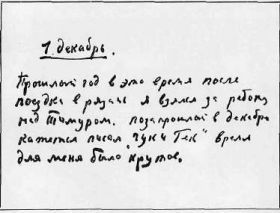 1. декабрь.
Прошлый год в это время после
поездки в рязань я взялся за работу
над Тимуром. позапрошлый в декабре
кажется писал "Чук и Гек" время
для меня было крутое.